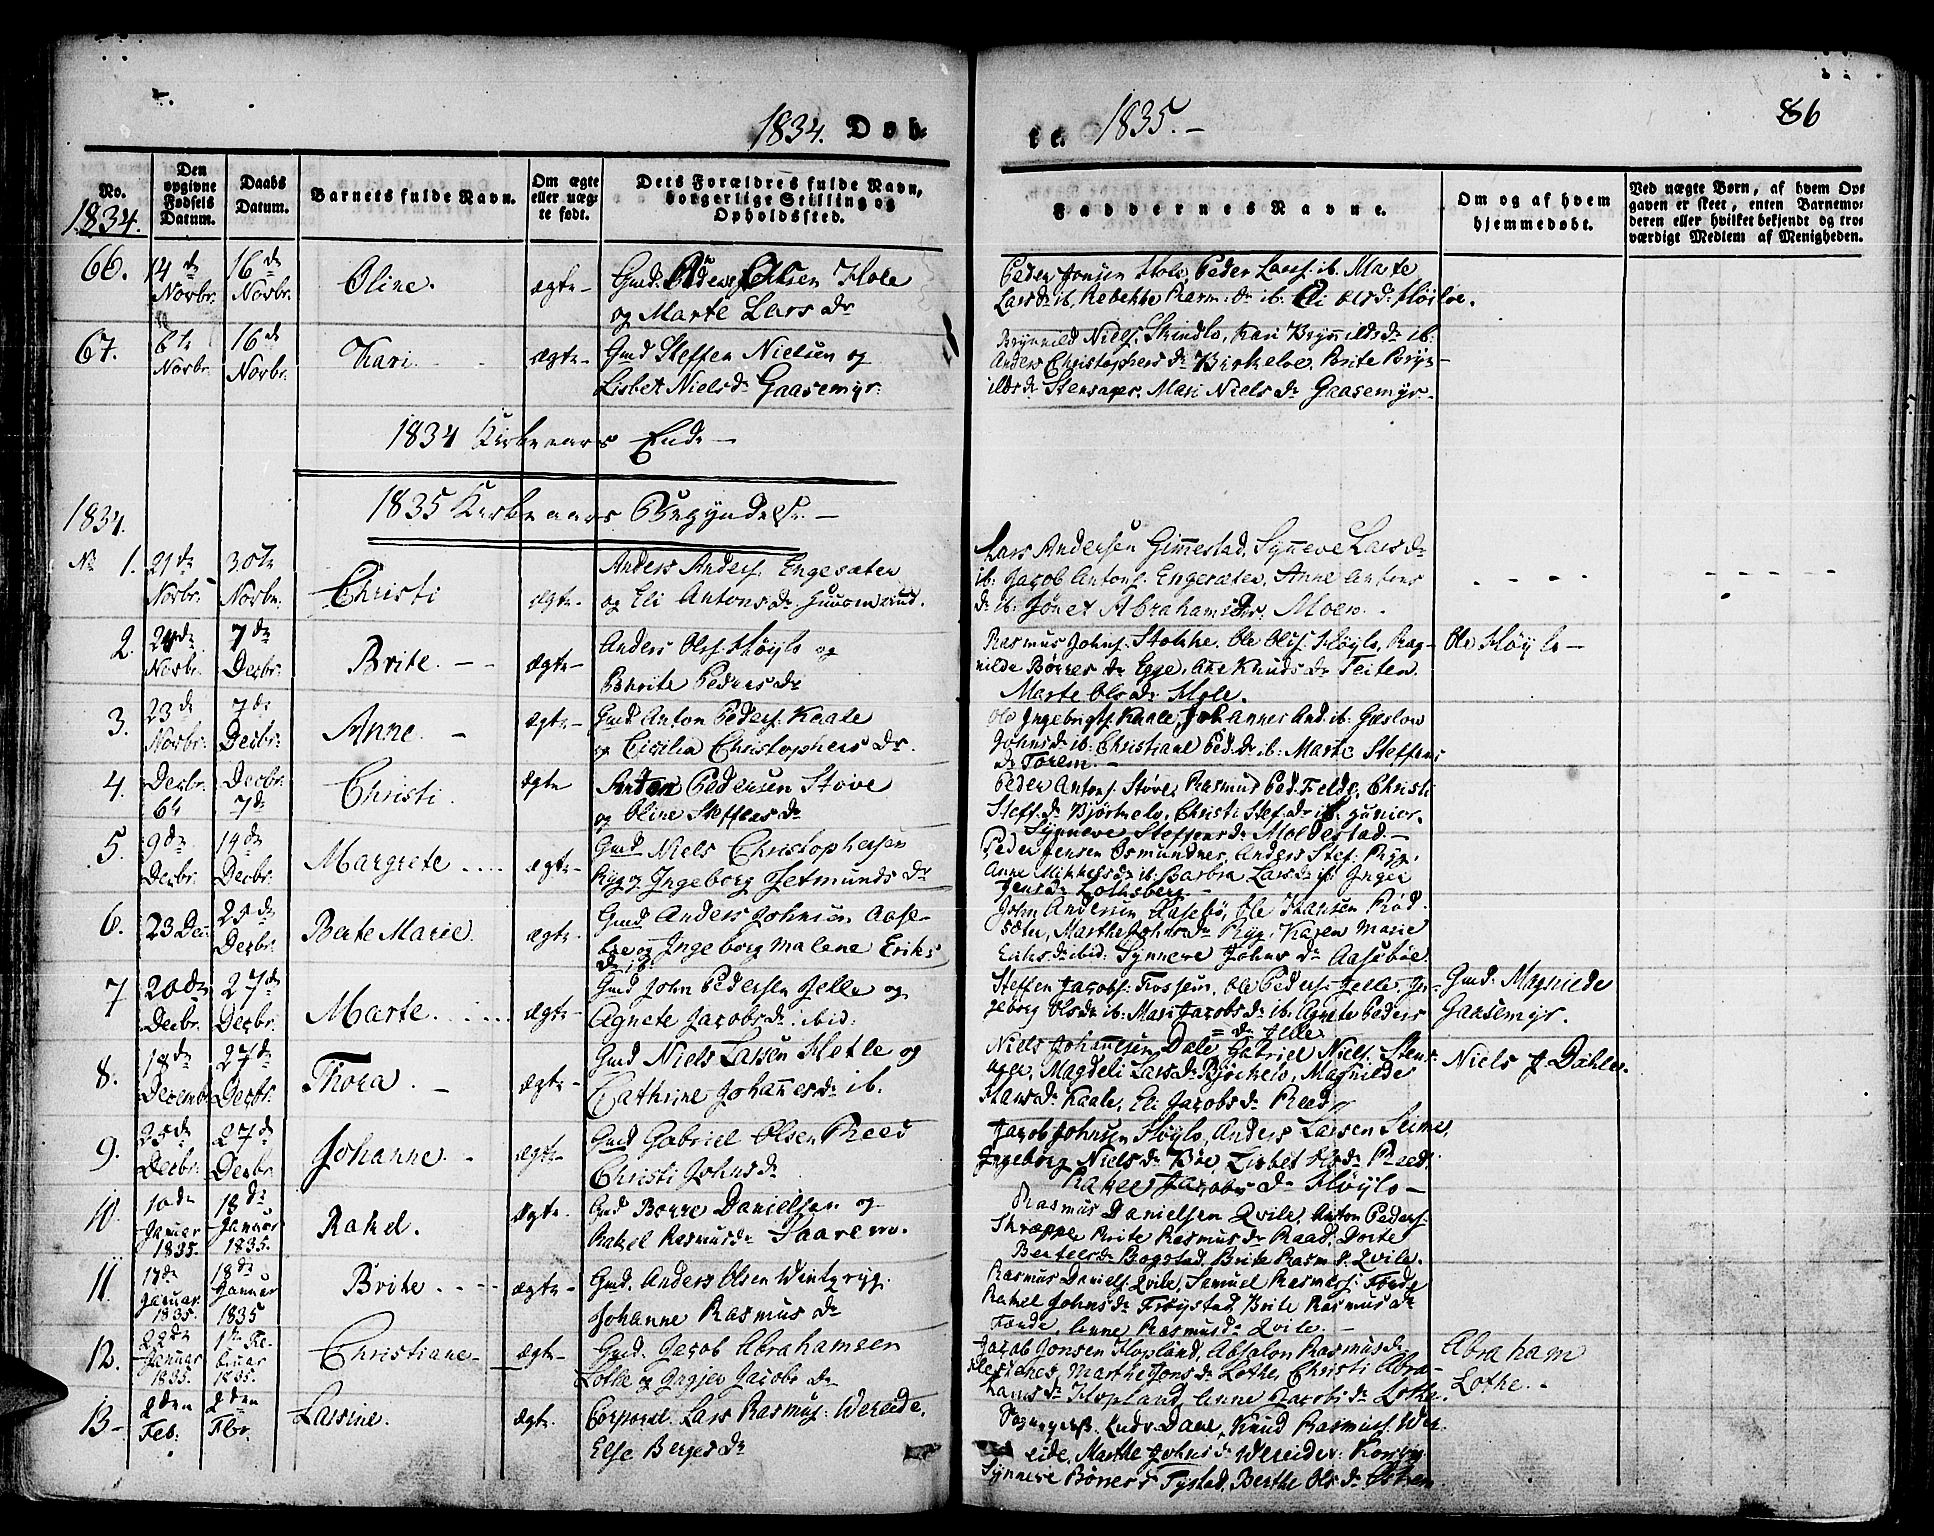 1834. Døb-
te. 1835.-
86
No.
1834.
Den opgivne Fødsels Datum.
Daabs Datum.
Barnets fulde Navn.
Om ægte eller uægte født.
Dets Forældres fulde Navn, borgerlige Stilling og Opholdssted.
Faddernes Navne.
Om og af hvem hjemmedøbt.
Ved uægte Børn, af hvem Opgaven er skeet, enten Barnemoderen eller hvilket bekjendt og troværdigt Medlem af Menigheden.
66. 14de Novbr. 16de Novbr. Oline. ægte- Gmd. Peder Olsen Hole
og Marte Lars Dr
Peder Jonsen Hole, Peder Larss. ib. Marte
Lars Dr ib. Rebekke Rasm: Dr ib: Eli Ols Dr Høilve.
67. 6te Novbr. 16de Novbr. Kari. ægte- Gmd Steffen Nielsen og
Lisbet Niels Dr Gaasemyr:
Brynnild Niels. Skindlo, Kari Brynnilds Dr ib:
Anders Christophers Dr Birkelve, Brite Bryn-
ilds Dr Stensager, Mari Niels Dr Gaasemyr-
1834 Kirkeaars Ende-
1835 Kirkeaars Begyndelse.-
1834.
No 1. 21de Novbr. 30te Novbr. Christi ægte- Anders Anders. Engesæter
og Eli Antons Dr
Lars Andersen Gimmestad, Synneve Lars Dr
ib: Jacob Antons: Engesæter, Anne Antons
Dr ib: Jonet Abrahams Dr Moen.
2. Novbr. 7de Decbr. Brite. ægte- Anders Ols. Høylo og
Brite Peders Dr
Rasmus Johns. Stokke, Ole Ols. Høylo, Rag-
nilde Børres Dr Egge, Ane Knuds Dr Teiten.
Marte Ols Dr Hole.
Ole Høylo-
3. 23de Novbr: 7de Decbr: Anne. ægte- Gmd Anton Peders: Kaale
og Cicilia Christophers Dr.
Ole Ingebrigts. Kaale, Johannes And. ib:
Johns Dr ib: Christiane Ped. Dr ib: Marte Steffens
Dr Torem.-
4. Decbr. 6te Decbr. 7de Christi. ægte Anton Pedersen Støve
og Oline Steffens Dr
Peder Antons. Støve, Rasmus Ped. Felde, Christi
Steff. Dr Bjørkelo, Christi Stef: Dr ib: junior.
Synneve Steffens Dr Moldestad.-
5. 9de Decbr. 14de Decbr. Margrete .... ægte- Gmd Niels Christophersen
Ryg og Ingeborg Jetmunds Dr
Peder Jensen Osmundnes, Anders Stef: Ryg,
Anne Mikkels Dr ib: Barbra Lars Dr ib: Inger
Jens Dr Lothsberg-
6. 23 Dec: 25de Decbr. Berte Marie. ægte- Gmd Anders Johnsen Aase-
bøe og Ingeborg Malene Eriks
Dr ib.
John Andersen Aasebø, Ole Hansen Rød-
sæter, Marthe Johns Dr Ryg, Karen Marie
Eriks Dr ibid: Synneve Johns Dr Aasebøe.
7 20de Decbr. 27de Decbr. Marte. ægte- Gmd John Pedersen Jelle og
Agnete Jacobs Dr ibid:
Steffen Jacobs: Fossem, Ole Peders. Jelle, In-
geborg Ols Dr ib: Mari Jacobs Dr ib: Agnete Peders
Dr Jelle.
Gmd: Magnilde
Gaasemyr.
8. 18de Decembr 27de Decbr. Thora. - ægte- Gmd Niels Larsen Hetle og
Cathrine Johannes Dr ib.
Niels Johannesen Dale, Gabriel Niels. Stens-
ager, Magdeli Lars Dr Bjørkelo, Magnilde
Hans Dr Kaale, Eli Jacobs Dr Reed
Niels J Dahle.
9. 25de Decbr. 27de Decbr. Johanne. - ægte- Gmd Gabriel Olsen Reed
Christi Johns Dr
Jacob Johnsen Høylo, Anders Larsen Seime,
Ingeborg Niels Dr Bøe, Lisbet Ols Dr Reed
Rakel Jacobs Dr Høylo-
10. 10de Januar 1835. 18de Januar 1835. Rakel. ægte- Gmd Borre Danielsen og
Rakel Rasmus Dr Paarem.
Rasmus Danielsen Qvile, Anton Peders:
Skræppe Brite Rasmus Dr Raad, Dorte
Bertels Dr Bogstad, Brite Rasm. D. Qvile.
11. 17de Januar. 1835. 18de Januar 1835 Brite. ægte- Gmd. Anders Olsen Wintzryg.
Johanne Rasmus Dr
Rasmus Daniels. Qvile, Samuel Rasmus: Førde
Rakel Johns Dr Frøystad, Brite Rasmus Dr
Førde, Anne Rasmus Dr Qvile.-
12. 22de Januar 1835. 1te Februar 1835. Christiane- ægte- Gmd. Jacob Abrahamsen
Lothe og Ingjer Jacobs Dr
Jacob Jonsen Hopland, Absalon Rasmus Dr
Marthe Jons Dr Lothe, Christi Abra-
hams Dr Hopland, Anne Jacobs Dr Lothe.
Abraham
Lothe.-
13- 2den Feb: 2den Fbr. Lassine. ægte. Corporal. Lars Rasmus: Wereide.
Else Berges Dr
Dale, Knud Rasmus: Wer-
eide, Marthe Johns Dr Wereide:
Synneve Børres D Tystad, Berthe Ols Dr